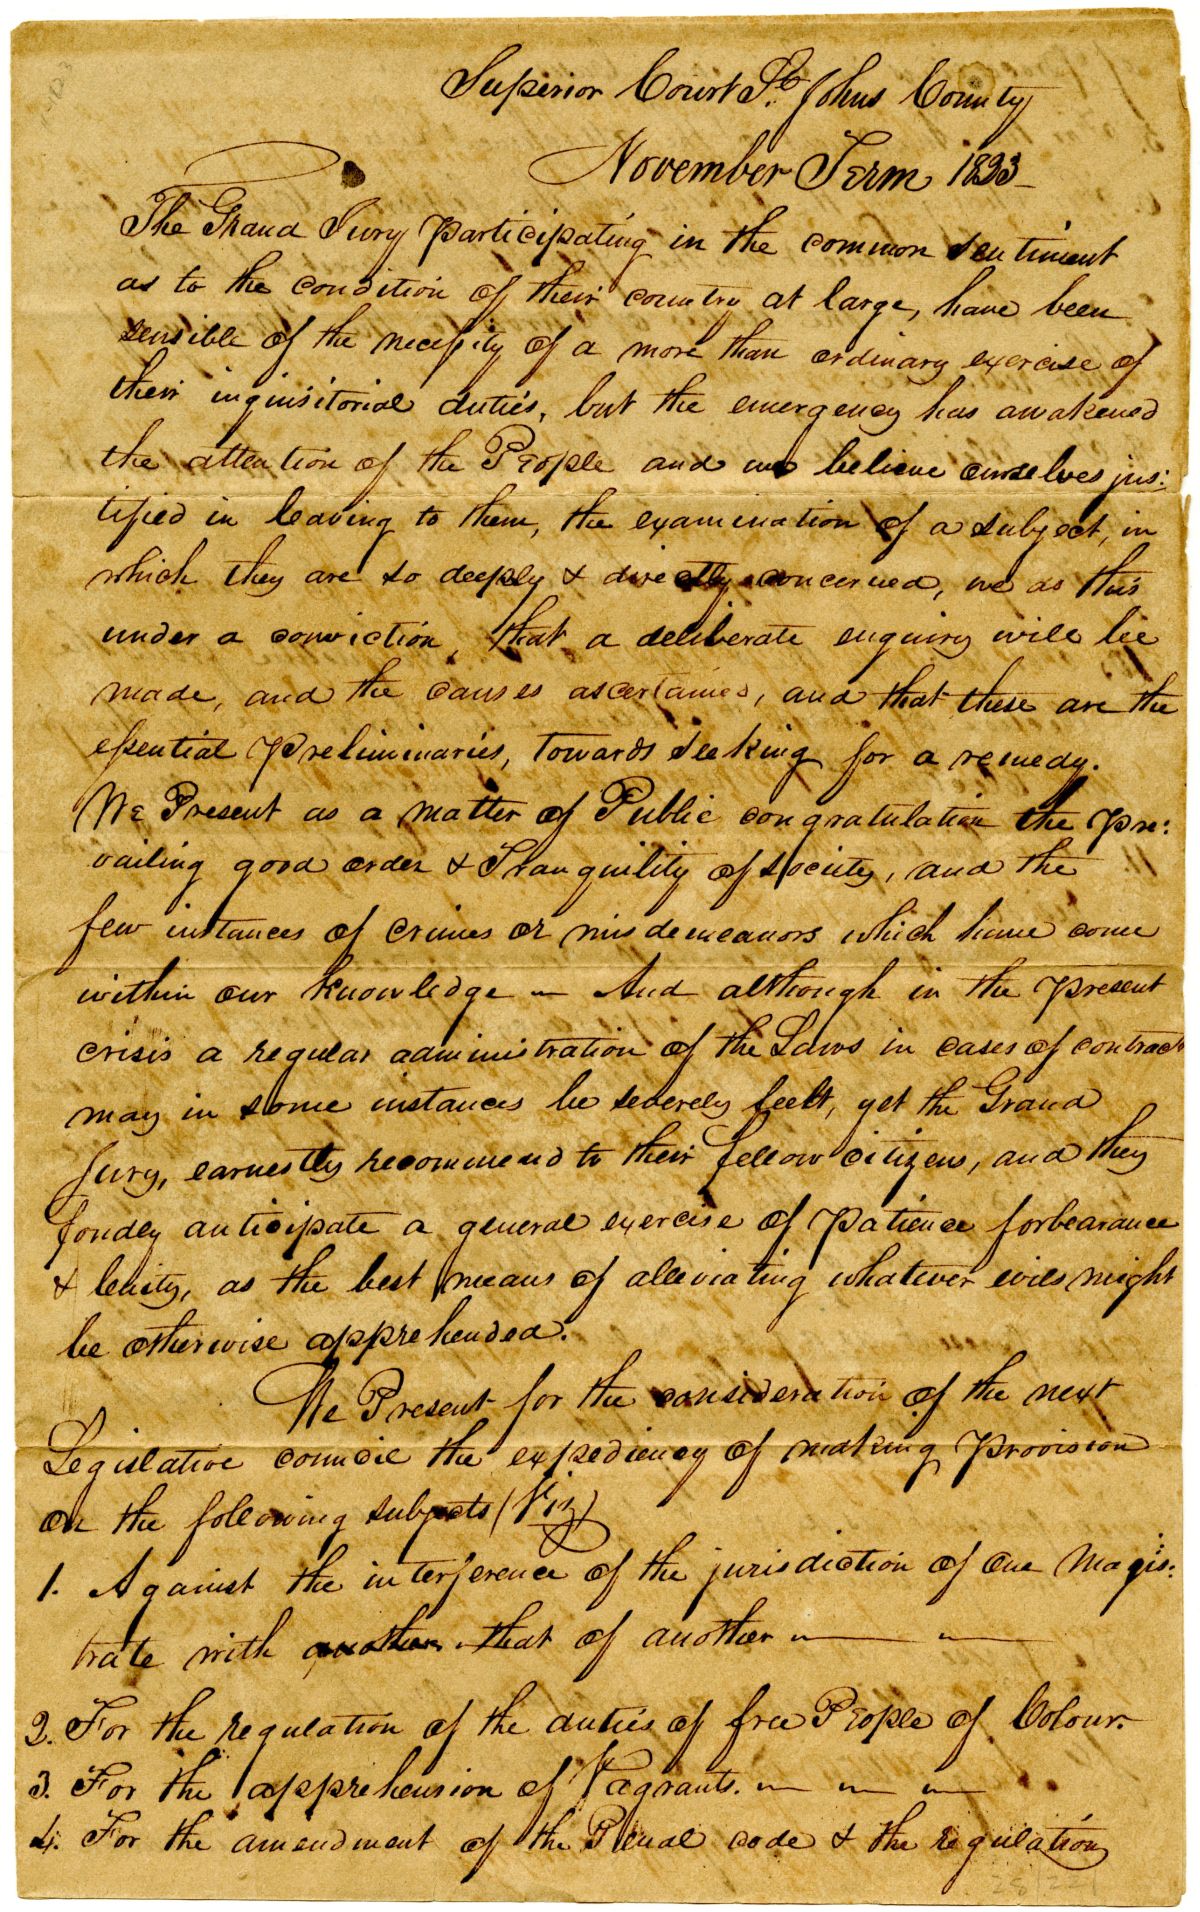 Superior Court St. Johns County
November Term 1823
The Grand Jury participating in the common sentiment
as to the condition of their country at large, have been
sensible of the necessity of a more than ordinary exercise of
their inquisitorial duties, but the emergency has awakened
the attention of the People and we believe ourselves jus:
tified in leaving to them, the examination of a subject, in
which they are so deeply & directly concerned, we do this
under a conviction, that a deliberate enquiry will be
made, and the causes ascertained, and that these are the
essential preliminaries, towards seeking for a remedy.
We Present as a matter of Public congratulation the pre:
vailing good order & Tranquility of society, and the
few instances of crimes or misdemeanors which have come
within our knowledge — And although in the present
crisis a regular administration of the Laws in cases of contract
may in some instances be severely felt, yet the Grand
Jury, earnestly recommend to their fellow citizens, and they
fondly anticipate a general exercise of patience forbearance
& lenity, as the best means of alleviating whatever evils might
be otherwise apprehended.
We Present for the consideration of the next
Legislative council the expediency of making provision
on the following subjects (Viz)
1. Against the interference of the jurisdiction of one Magis:
trate with another that of another — —
2. For the regulation of the duties of free People of Colour.
3. For the apprehension of Vagrants. — — —
4. For the amendment of the Penal code & the regulation